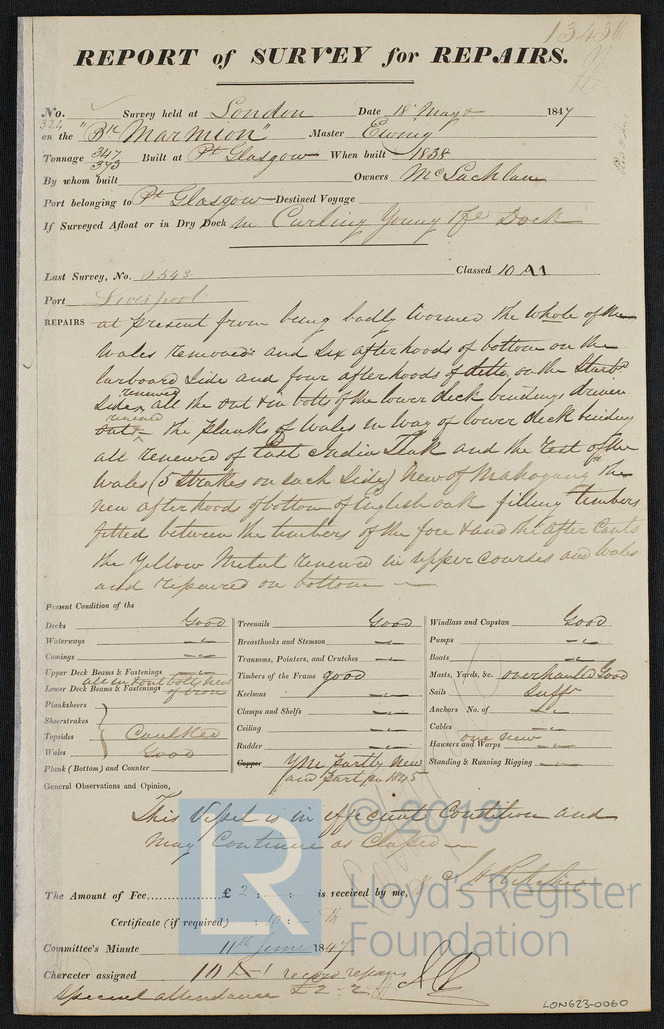 13430
REPORT of SURVEY for REPAIRS.
No. 324 Survey held at London Date 18 May 1847
on the "Bk Marmion" Master Ewing
Tonnage 347 373 Built at Pt Glasgow When built 1838
By whom built Owners McLachlan
Port belonging to Pt Glasgow Destined Voyage
If Surveyed Afloat or in Dry Dock in Curling Young & Co Dock
Last Survey, No. 8543 Classed 10 A1
Port Liverpool
REPAIRS at present from being badly Wormed the whole of the
Wales removed and six afterhoods of bottom on the
larboard side and four afterhoods of ditto on the Starbd
side renewed, all the out & in bolts of the lower deck bindings driven
out & renewed the planks of Wales in way of lower deck bindings
all renewed of East India Teak and the rest of the
Wales (5 Strakes on each side) New of Mahogany The
new afterhoods of bottom of English oak filling timbers
fitted between the timbers of the fore & and the after Cants
the Yellow Metal renewed in upper courses and wales
and repaired on bottom
Present Condition of the
Decks Good
Waterways "
Comings "
Upper Deck Beams & Fastenings "
all in & out bolts new
Lower Deck Beams & Fastenings of iron
Planksheers
Sheerstrakes
Topsides Caulked
Wales Good
Plank (Bottom) and Counter
Treenails Good
Breasthooks and Stemson "
Transoms, Pointers, and Crutches "
Timbers of the Frame good
Keelsons "
Clamps and Shelfs "
Ceiling "
Rudder "
Copper YM Partly New
and part in 1845
Windlass and Capstan Good
Pumps "
Boats "
Masts, Yards, &c. overhauled Good
Sails Suff
Anchors No. of "
Cables "
one new
Hawsers and Warps "
Standing & Running Rigging "
General Observations and Opinion,
This Vessel is in efficient Condition and
may Continue as Classed
The Amount of Fee £ 2 : : is received by me,
Certificate (if required) : 10 :
Committee's Minute 11th June 1847
Character assigned 10 A 1 repairs
Special attendance £2 - 2
LON623-0060
© 2019
LR
Lloyd's Register
Foundation